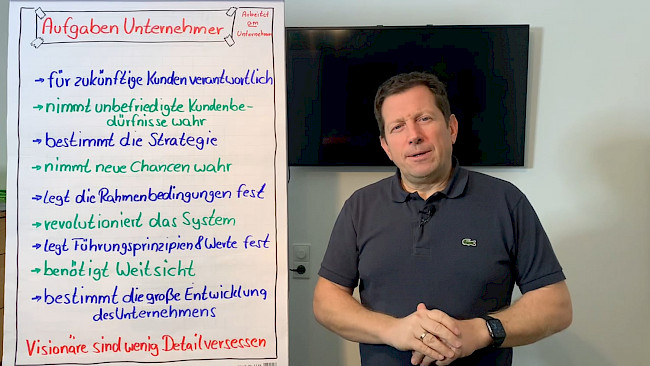 Aufgaben Unternehmer
Arbeitet
am
Unternehmen
→ für zukünftige Kunden verantwortlich
→ nimmt unbefriedigte Kundenbe-
dürfnisse wahr
→ bestimmt die Strategie
→ nimmt neue Chancen wahr
→ legt die Rahmenbedingungen fest
→ revolutioniert das System
→ legt Führungsprinzipien & Werte fest
→ benötigt Weitsicht
→ bestimmt die große Entwicklung
des Unternehmens
Visionäre sind wenig Detailversessen